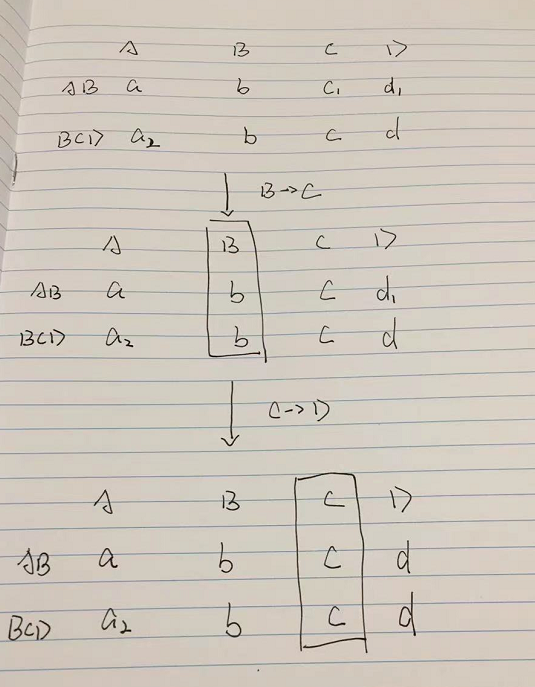 A B C D
AB a b c₁ d₁
BCD a₂ b c d
↓ B→C
A B C D
AB a b c d₁
BCD a₂ b c d
↓ C→D
A B C D
AB a b c d
BCD a₂ b c d